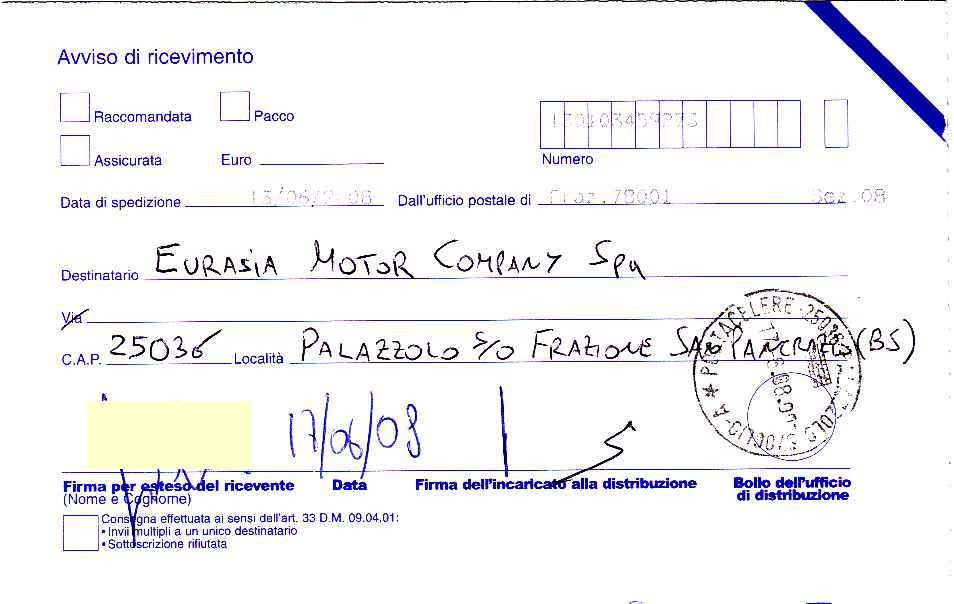 Avviso di ricevimento
Raccomandata Pacco
130103459273
Assicurata Euro Numero
Data di spedizione 13/06/2008 Dall'ufficio postale di Fraz.78001 Sez.08
Destinatario EURASIA MOTOR COMPANY Spa
Via
C.A.P. 25036 Località PALAZZOLO S/O FRAZIONE SAN PANCRAZIO (BS)
17/06/08
Firma per esteso del ricevente Data Firma dell'incaricato alla distribuzione Bollo dell'ufficio
(Nome e Cognome) di distribuzione
Consegna effettuata ai sensi dell'art. 33 D.M. 09.04.01:
• Invii multipli a un unico destinatario
• Sottoscrizione rifiutata